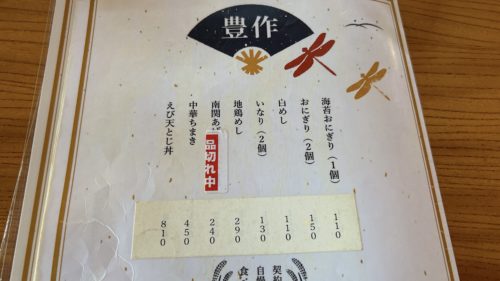 豊作
海苔おにぎり(1個)
おにぎり(2個)
白めし
いなり(2個)
地鶏めし
南関あ
品切れ中
中華ちまき
えび天とじ丼
110
150
110
130
290
240
450
810
契約
自慢
食べ